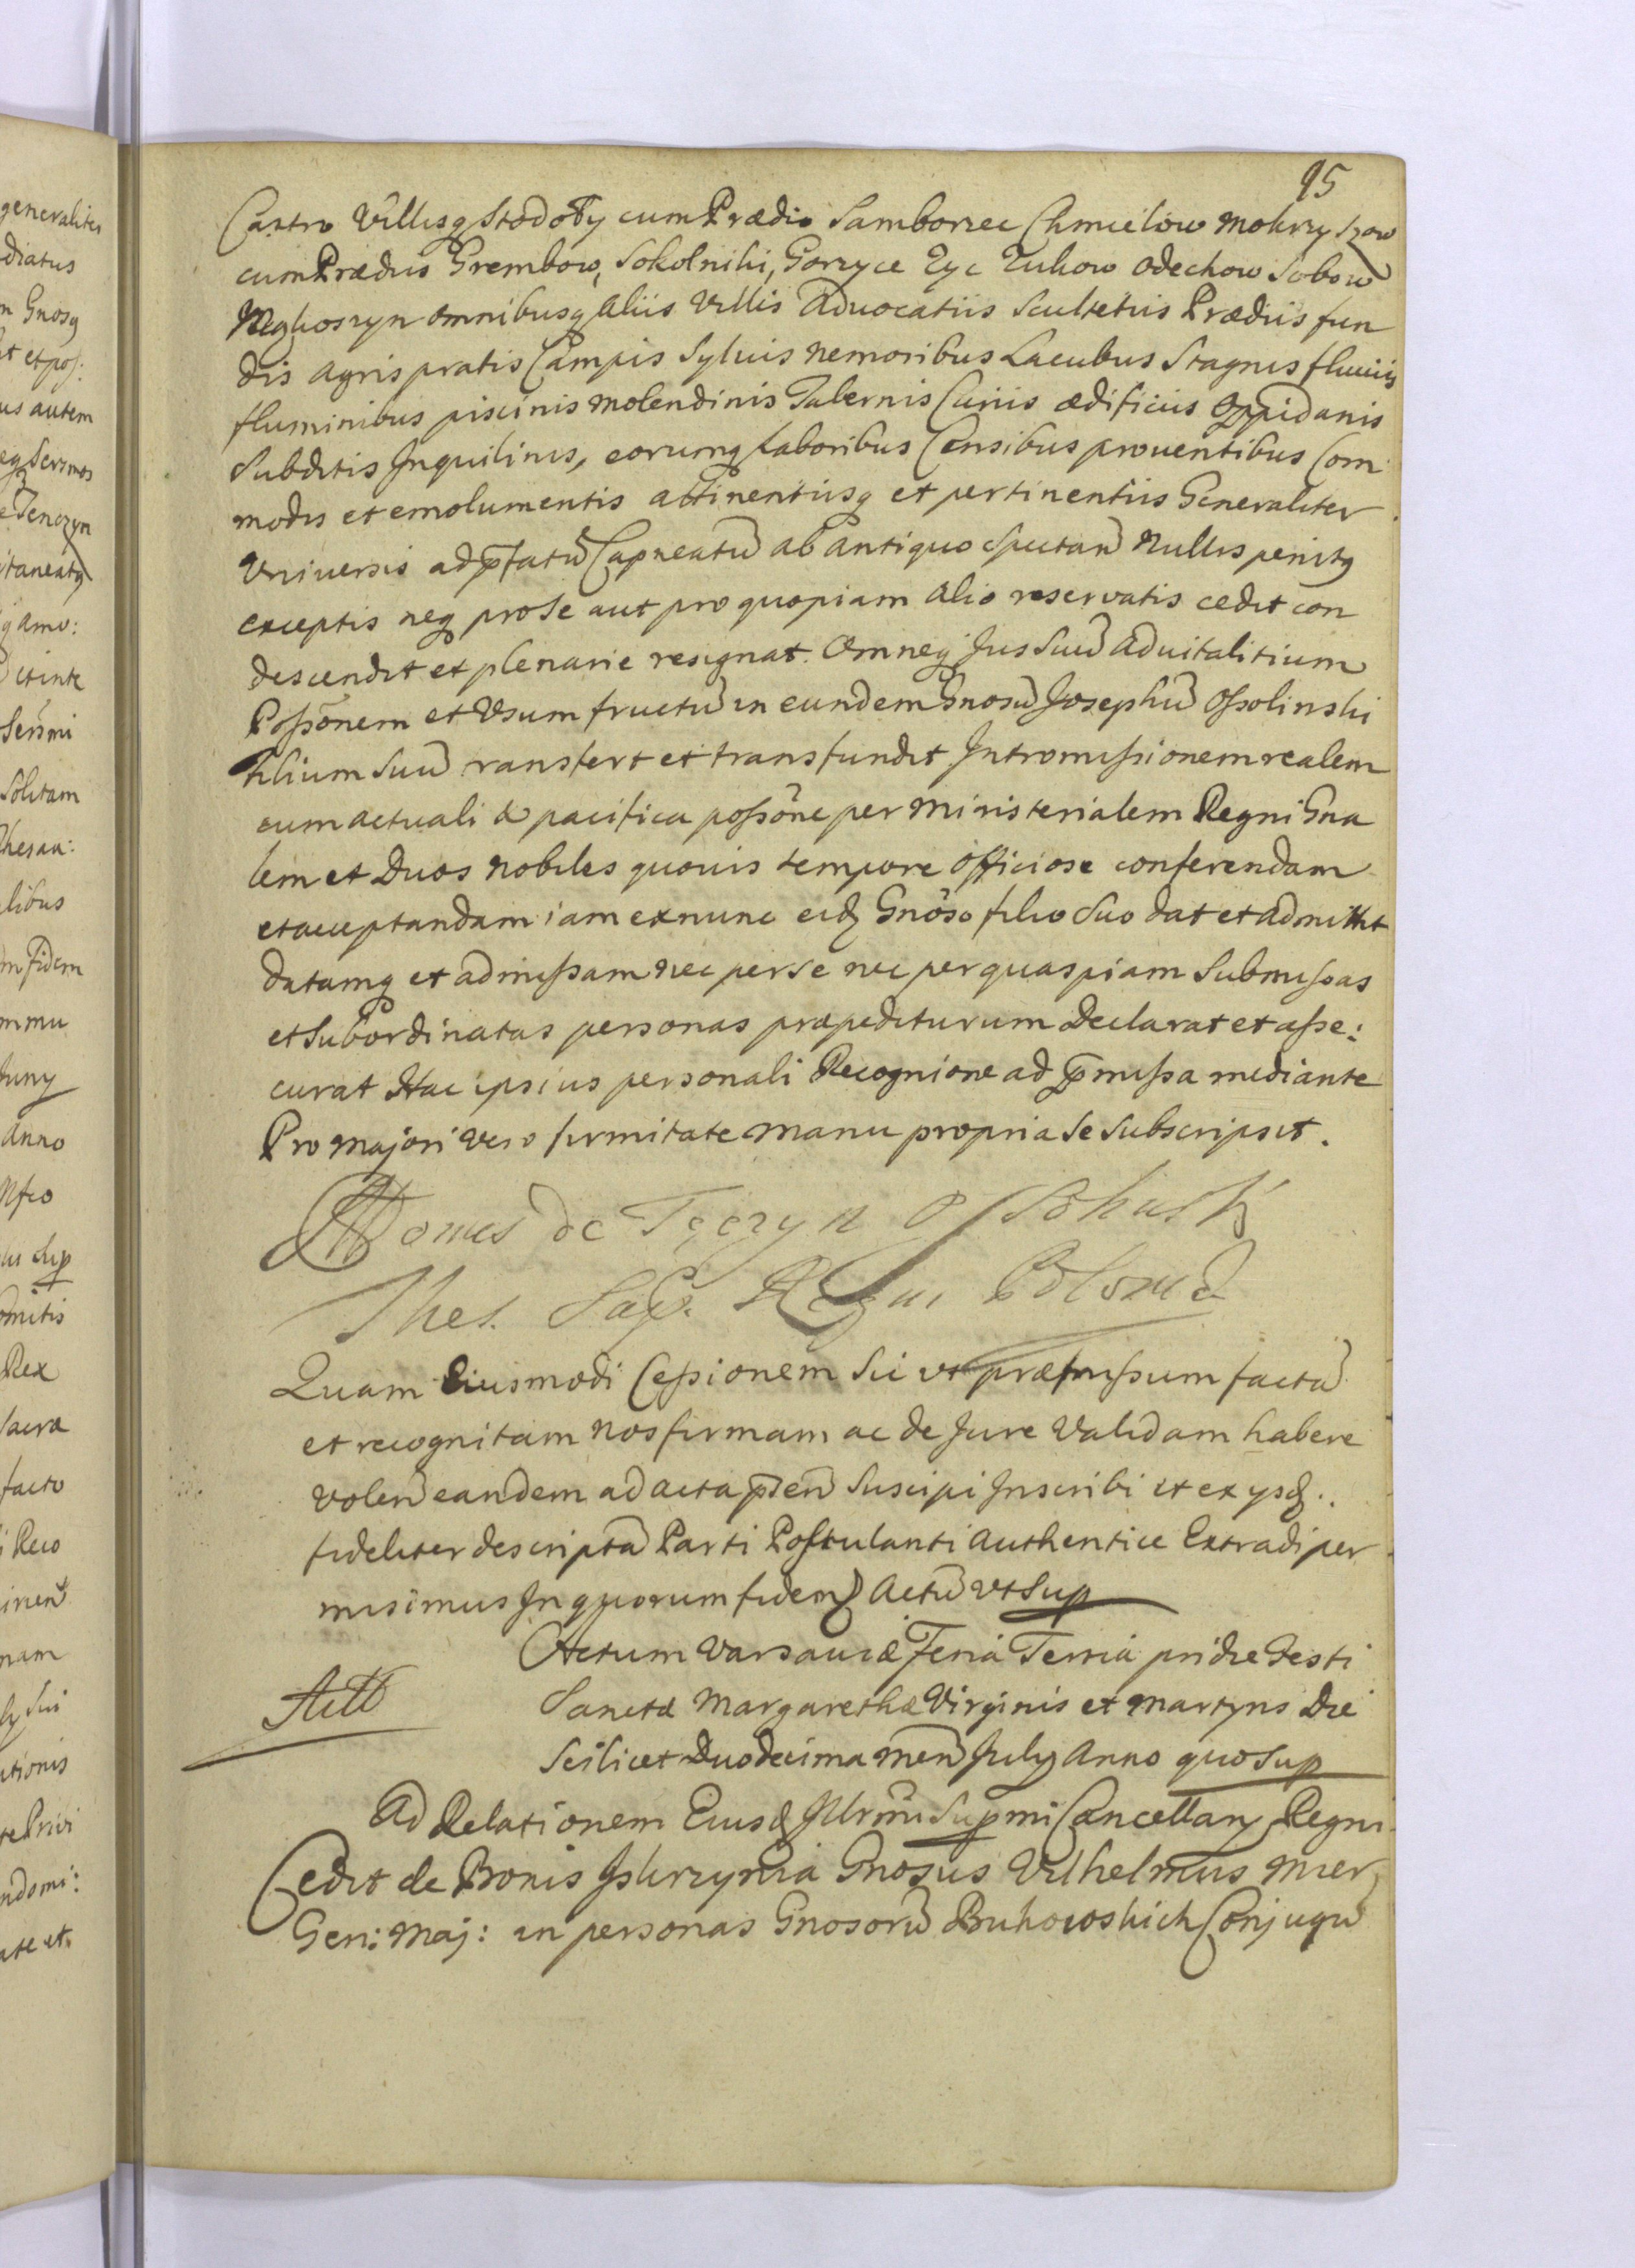 95
Castro Villisq Stodoły cum Prædio Samborzec Chmielow Mokrzyszow
cum Prædiis Grembow, Sokolniki, Gorzyce Zyc Zukow Odechow Sobow
omnibusq aliis Villis Advocatiis Scultetiis Prædiis fun
dis agris pratis Campis Sylvis nemoribus Lacubus Stagnis fluviis
fluminibus piscinis molendinis Tabernis Curiis ædificiis Oppidanis
Subditis Inquilinis, eorumq laboribus Censibus proventibus Com
modis et emolumentis attinentiisq et pertinentiis Generaliter
Universis ad pfatũ Capneatũ ab antiquo spectañ Nullis penitq
exceptis neq pro Se aut pro quopiam alio reservatis cedit con
descendit et plenarie resignat. Omneq Jus Suũ advitalitium
Poßõnem et Usumfructũ in eundem Gnosũ Josephũ Oßolinski
filium Suũ ransfert et transfundit Intromißionem realem
cum actuali & pacifica poßõne per Ministerialem Regni Gna
lem et Duos nobiles quovis tempore officiose conferendam
et acceptandam iam ex nunc eidȝ Gnõso filio Suo dat et admittit
datamq et admißam nec per se nec per quaspiam Submißas
et Subordinatas personas præpediturum Declarat et aße:
curat Hac ipsius personali Recognione ad pmißa mediante
Pro Majori vero firmitate Manu propria Se Subscripsit.
Comes de Tęczyn Ossolinski
Thes. Sup. Regni Poloniæ
Quam Eiusmodi Ceßionem Sic ut præmißum factã
et recognitam Nos firmam ac de Jure Validam habere
voleñ eandem ad acta pñten Suscipi Inscribi et ex ysdȝ
fideliter descriptã Parti Postulanti Authentice Extradi per
misimus In quorum fidem Actũ ut Sup
Actum Varsaviæ Feria Tertia pridie Festi
Sanctæ Margarethæ Virginis et Martyris Die
Scilicet Duodecima Meñ July Anno quo Sup
Ad Relationem Eiusdȝ Illrmi Supmi Cancellary Regni
Cedit de Bonis Iskrzynia Gnosus Vilhelmus Mier
Gen: Maj: in personas Gnosorũ Bukowskich Conjugũ